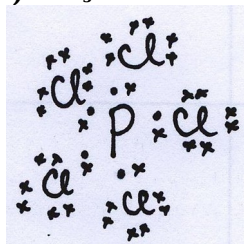 Cl
Cl
P Cl
Cl Cl